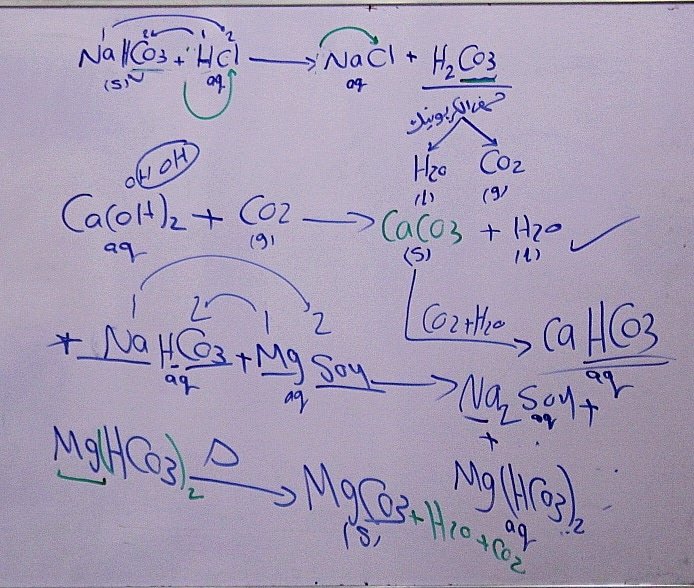 1 2 1 2
NaHCO3 + HCl → NaCl + H2CO3
(s) aq aq
حمض الكربونيك
H2O CO2
(l) (g)
OH OH
Ca(OH)2 + CO2 → CaCO3 + H2O ✓
aq (g) (s) (l)
CO2+H2O → CaHCO3
aq
1 2 1 2
+ NaHCO3 + MgSO4 → Na2SO4 +
aq aq aq
+
Mg(HCO3)2
aq
Mg(HCO3)2 Δ → MgCO3 + H2O + CO2
(s)